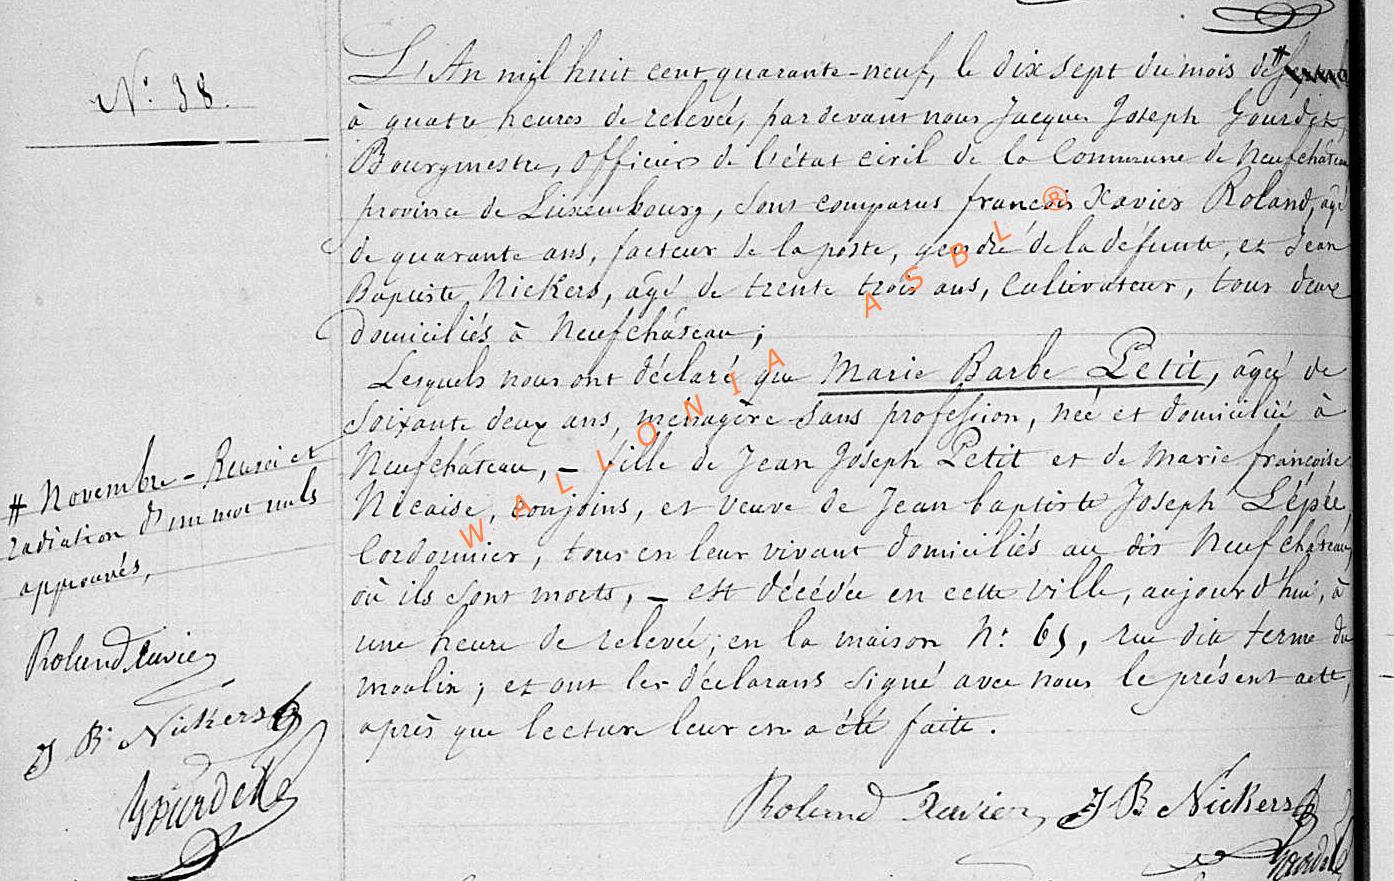 N.° 38.
L'An mil huit cent quarante-neuf, le dix sept du mois de #
à quatre heures de relevée, pardevant nous Jacques Joseph Gourdet,
Bourgmestre, officier de l'état civil de la Commune de Neufchâteau
province de Luxembourg, sont comparus françois Xavier Roland, agé
de quarante ans, facteur de la poste, gendre de la défunte, et Jean
Baptiste Nickers, agé de trente trois ans, Cultivateur, tous deux
domiciliés à Neufchâteau;
Lesquels nous ont déclaré que Marie Barbe Petit, âgée de
soixante deux ans, ménagère sans profession, née et domiciliée à
Neufchâteau, – fille de Jean Joseph Petit et de Marie françoise
Nicaise, conjoins, et veuve de Jean baptiste Joseph Lépée,
Cordonnier, tous en leur vivant domiciliés au dit Neufchâteau,
où ils sont morts, – est décédée en cette ville, aujourd'hui, à
une heure de relevée; en la maison N.° 65, rue dite terme du
moulin; et ont les déclarans signé avec nous le présent acte,
après que lecture leur en a été faite.
# Novembre - Renvoi et
radiation d'un mot nuls
approuvés,
Roland Xavier
J B. Nickers
Gourdet
Roland Xavier J B Nickers
Gourdet
WALLONIA ASBL ®